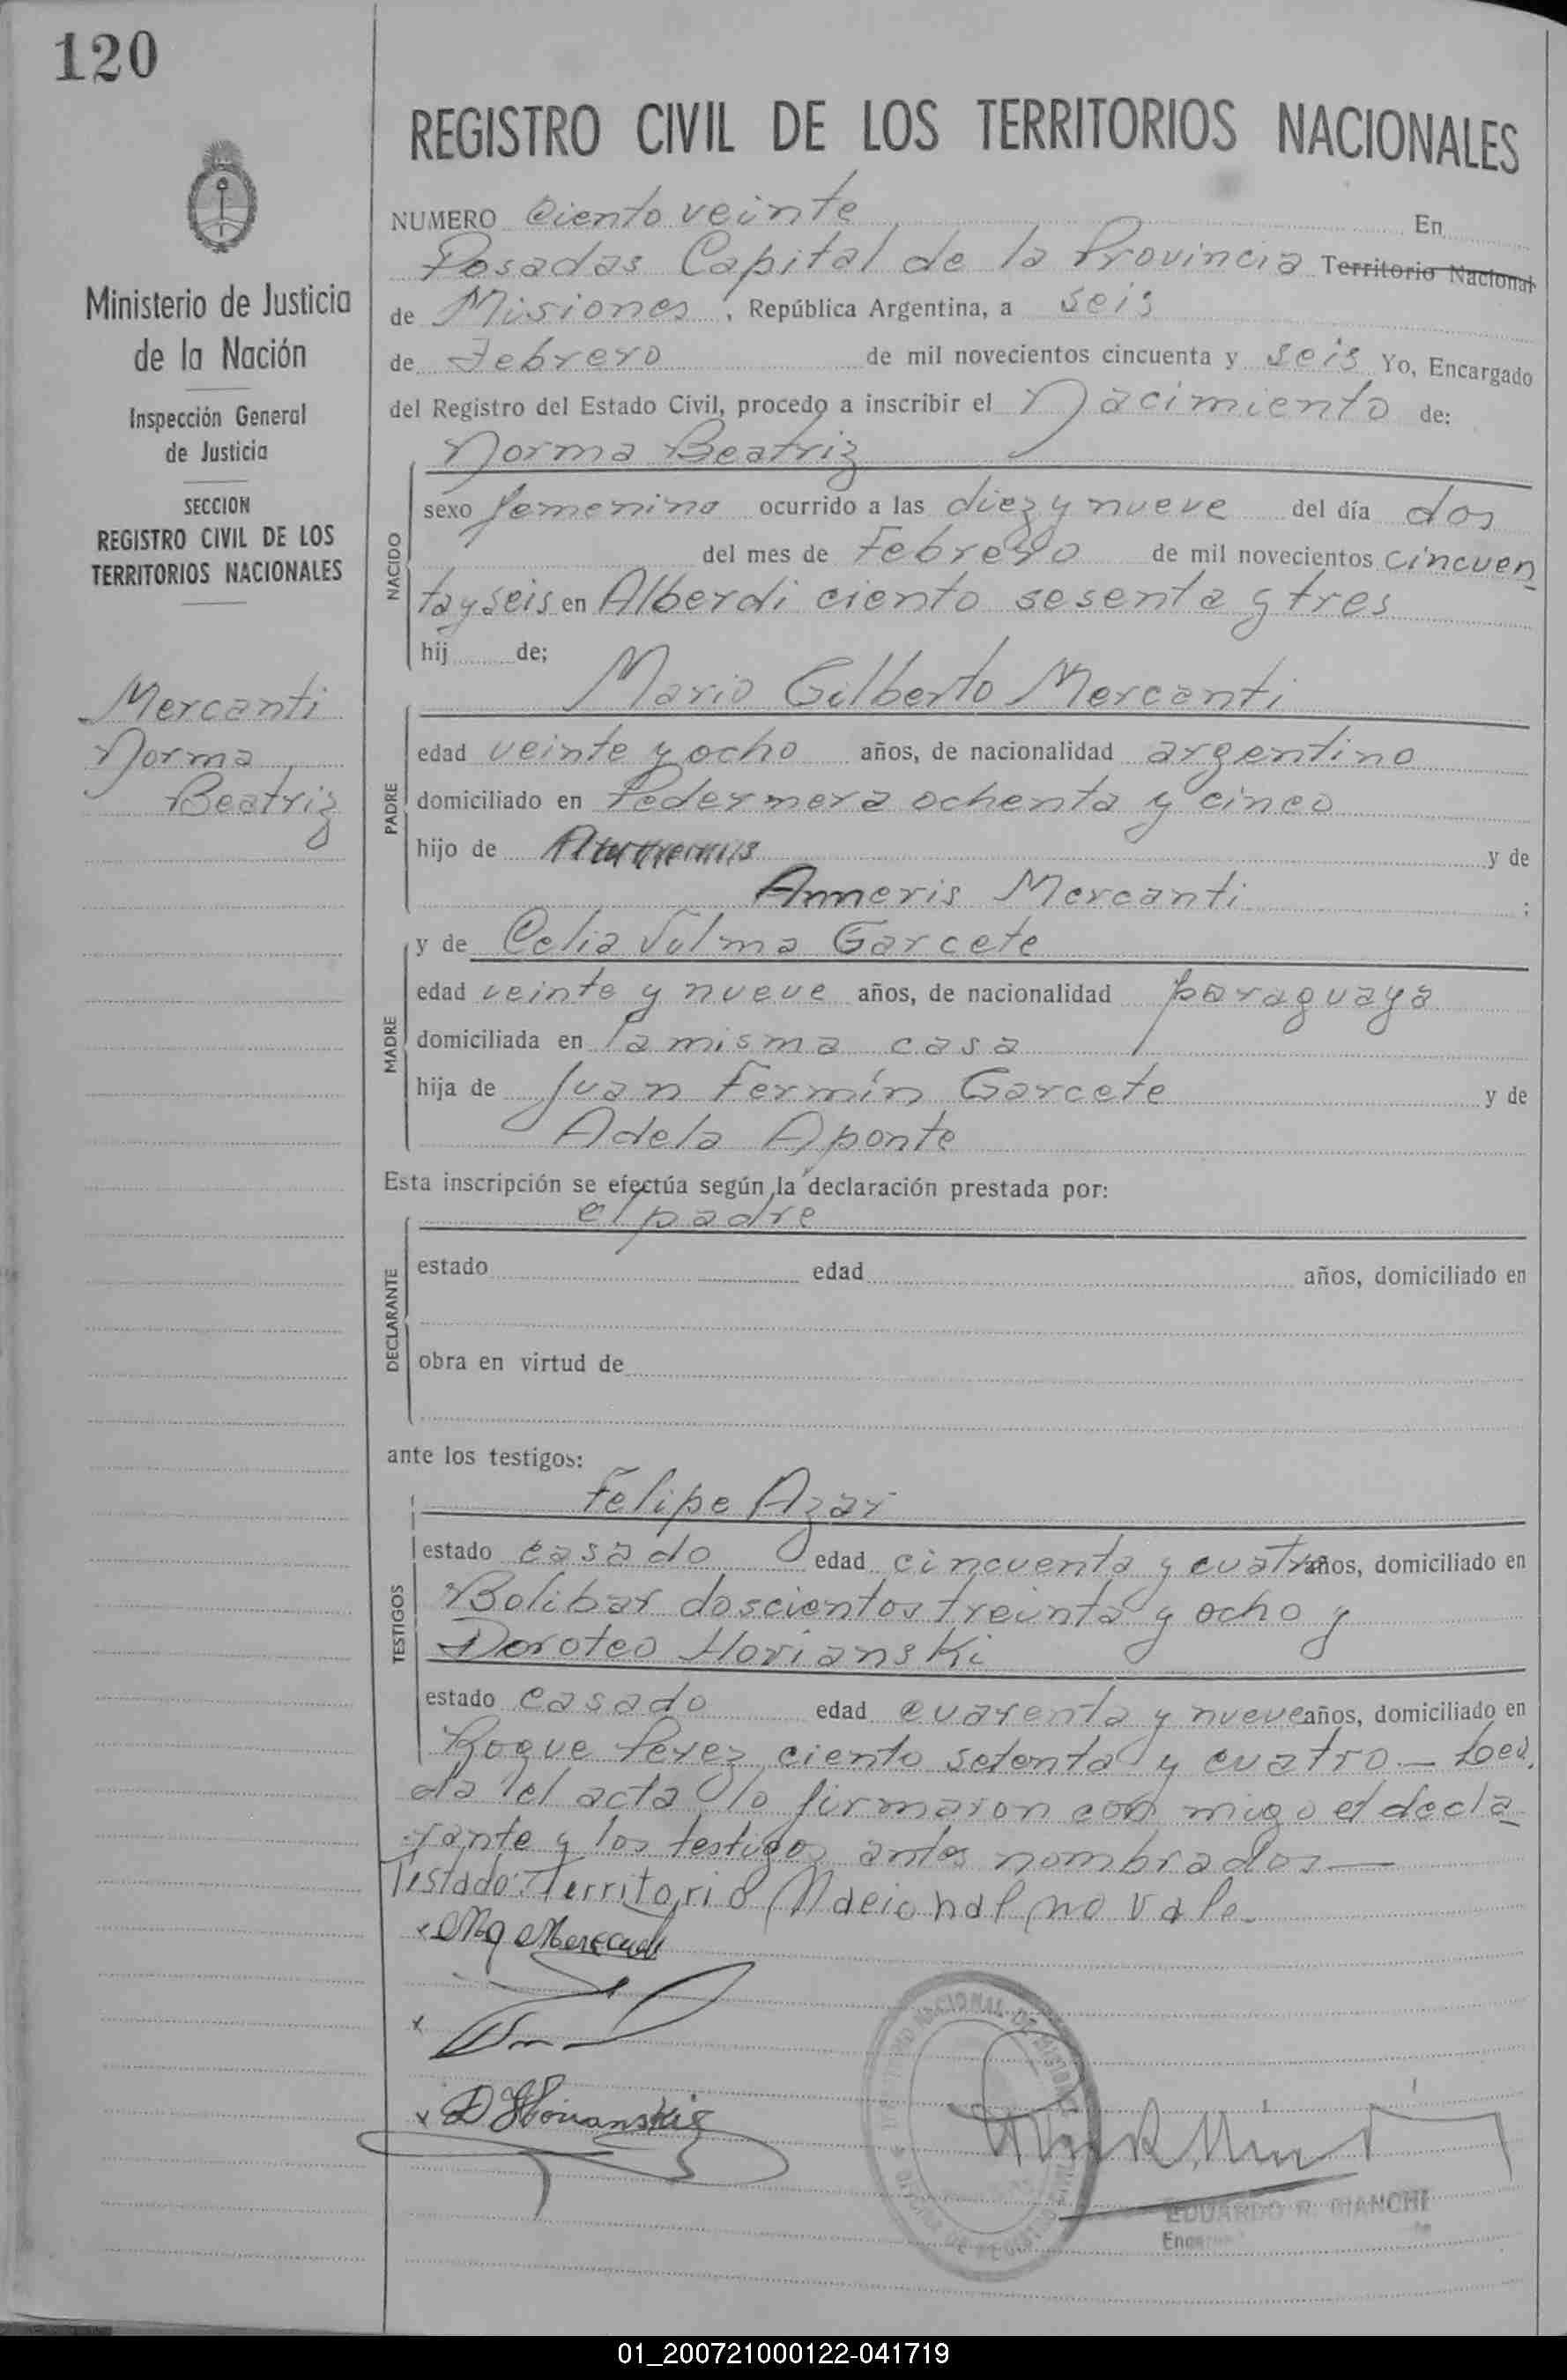 120
Ministerio de Justicia
de la Nación
Inspección General
de Justicia
SECCION
REGISTRO CIVIL DE LOS
TERRITORIOS NACIONALES
Mercanti
Norma
Beatriz
REGISTRO CIVIL DE LOS TERRITORIOS NACIONALES
NUMERO Ciento veinte En
Posadas Capital de la Provincia Territorio Nacional
de Misiones, República Argentina, a seis
de Febrero de mil novecientos cincuenta y seis Yo, Encargado
del Registro del Estado Civil, procedo a inscribir el Nacimiento de:
Norma Beatriz
NACIDO
sexo femenino ocurrido a las diez y nueve del día dos
del mes de Febrero de mil novecientos cincuen
ta y seis en Alberdi ciento sesenta y tres
hij de;
Mario Gilberto Mercanti
PADRE
edad veinte y ocho años, de nacionalidad argentino
domiciliado en Pedernera ochenta y cinco
hijo de y de
Anneris Mercanti ;
MADRE
y de Celia Vilma Garcete
edad veinte y nueve años, de nacionalidad paraguaya
domiciliada en la misma casa
hija de Juan Fermín Garcete y de
Adela Aponte
Esta inscripción se efectúa según la declaración prestada por:
el padre
DECLARANTE
estado edad años, domiciliado en
obra en virtud de
ante los testigos:
Felipe Azar
TESTIGOS
estado casado edad cincuenta y cuatro años, domiciliado en
Bolibar doscientos treinta y ocho y
Doroteo Horianski
estado casado edad cuarenta y nueve años, domiciliado en
Roque Perez ciento setenta y cuatro.— Leí
da el acta lo firmaron con migo el decla
rante y los testigos antes nombrados—
Testado: Territorio Nacional no vale.
D Horianski
EDUARDO R. BIANCHI
01_200721000122-041719